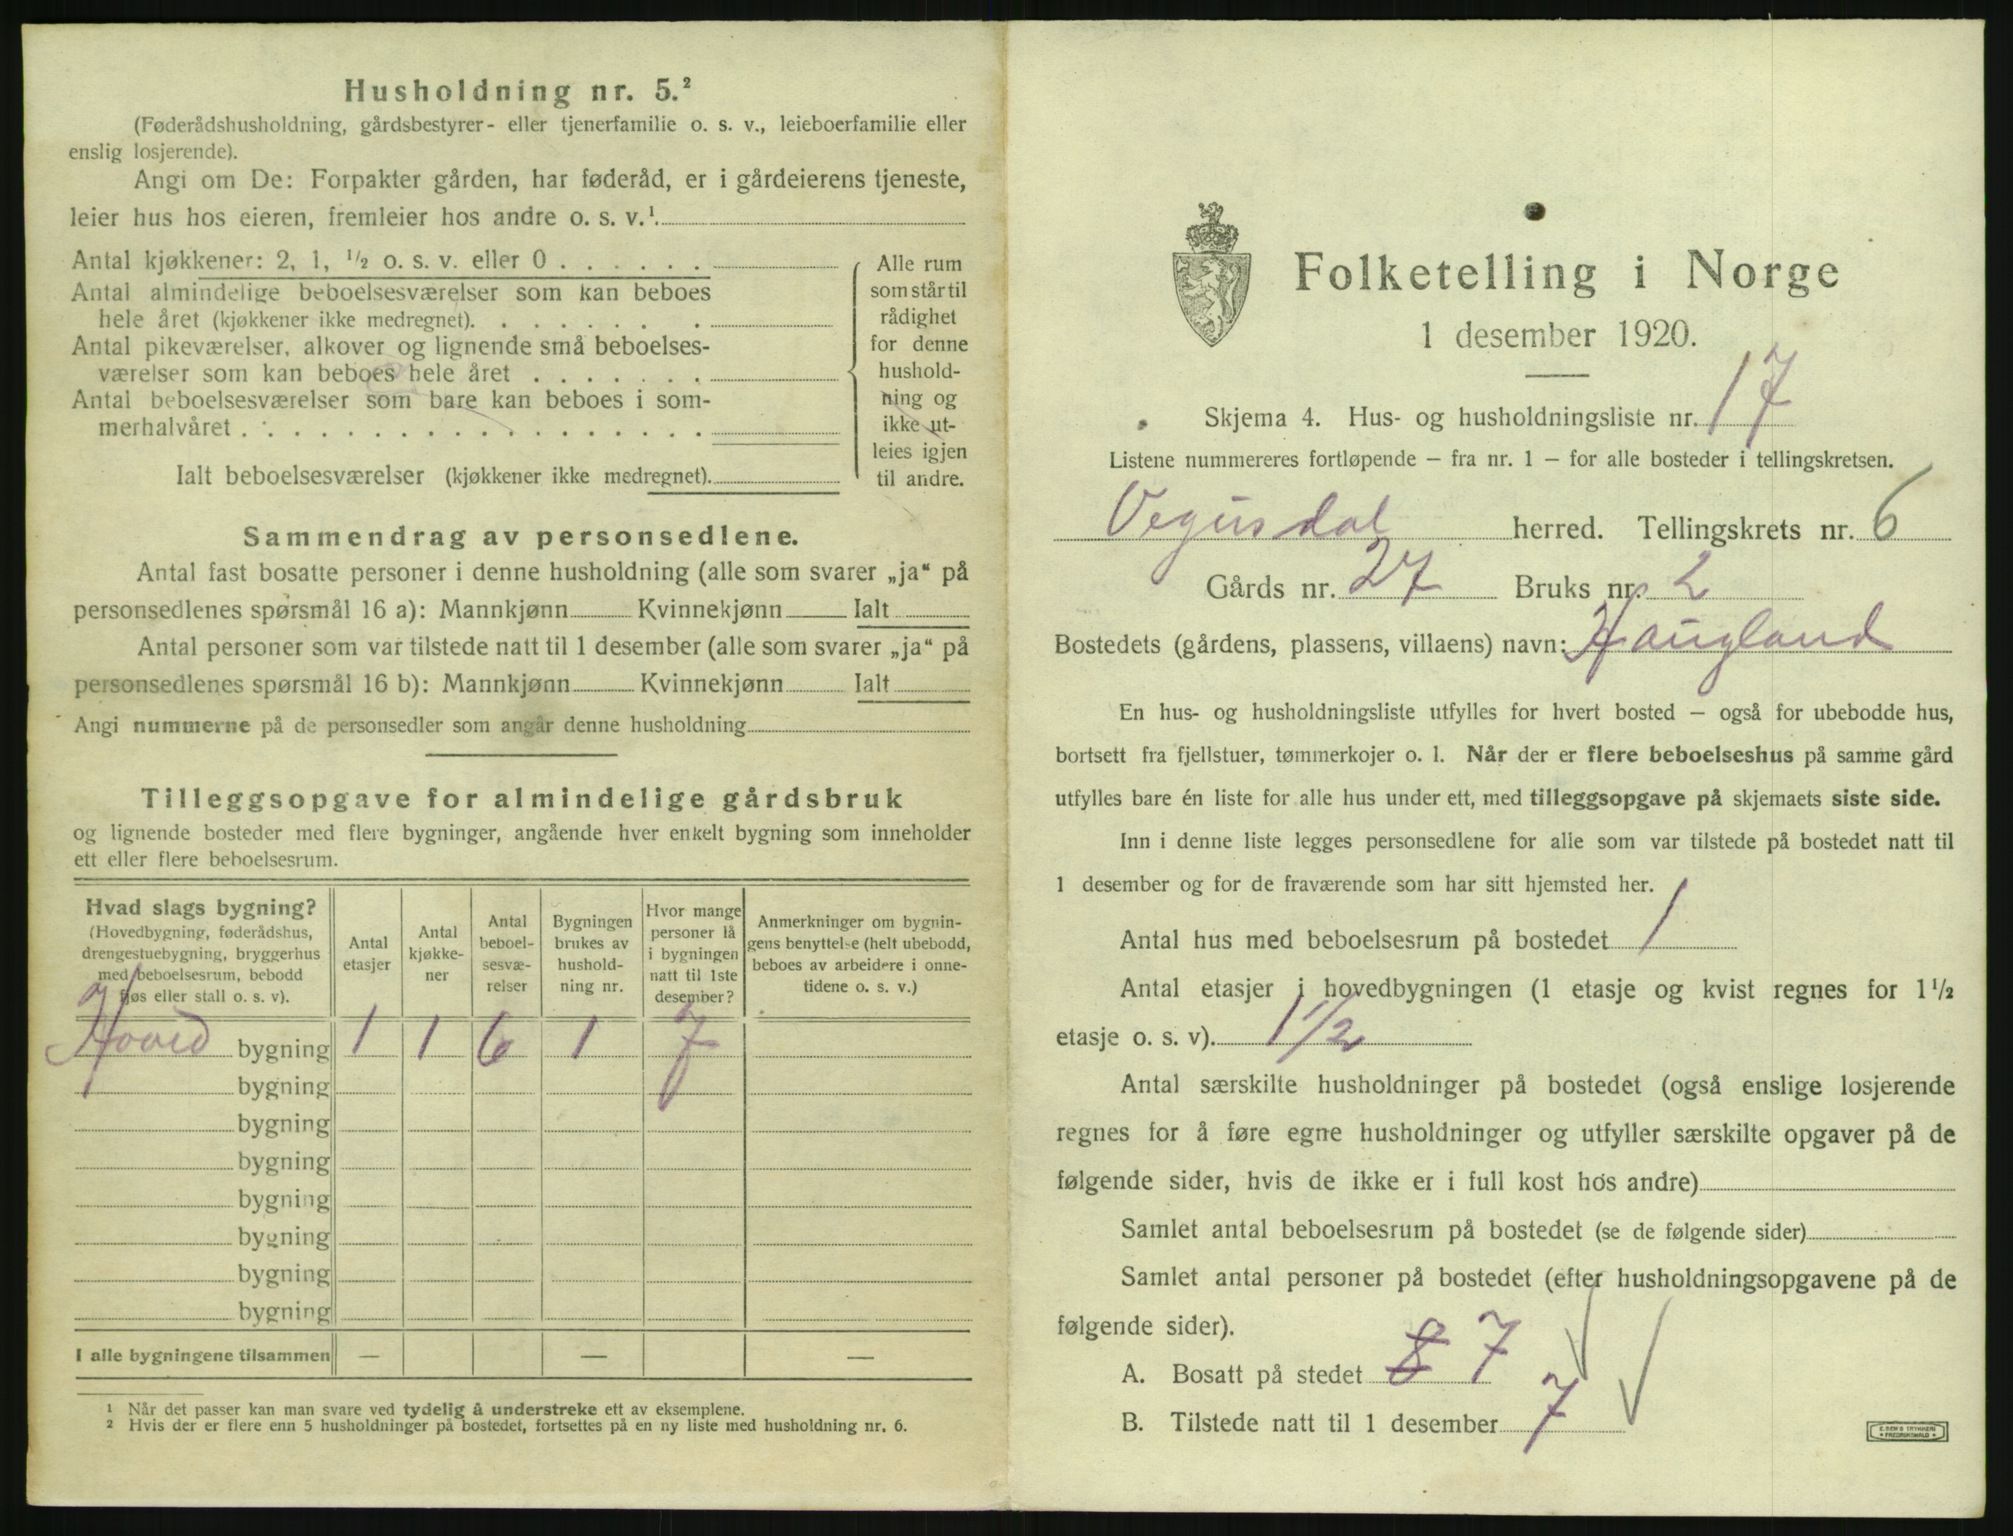 Husholdning nr. 5.²
(Føderådshusholdning, gårdsbestyrer- eller tjenerfamilie o. s. v., leieboerfamilie eller
enslig losjerende).
Angi om De: Forpakter gården, har føderåd, er i gårdeierens tjeneste,
leier hus hos eieren, fremleier hos andre o. s. v.¹.
Antal kjøkkener: 2, 1, ¹/₂ o. s. v. eller 0 . . . . . .
Antal almindelige beboelsesværelser som kan beboes
hele året (kjøkkener ikke medregnet). . . . . . . .
Antal pikeværelser, alkover og lignende små beboelses-
værelser som kan beboes hele året . . . . . . .
Antal beboelsesværelser som bare kan beboes i som-
merhalvåret . . . . . . . . . . . . . . . . . .
Ialt beboelsesværelser (kjøkkener ikke medregnet).
Alle rum
som står til
rådighet
for denne
hushold-
ning og
ikke ut-
leies igjen
til andre.
Sammendrag av personsedlene.
Antal fast bosatte personer i denne husholdning (alle som svarer „ja“ på
personsedlenes spørsmål 16 a): Mannkjønn Kvinnekjønn Ialt
Antal personer som var tilstede natt til 1 desember (alle som svarer „ja“ på
personsedlenes spørsmål 16 b): Mannkjønn Kvinnekjønn Ialt
Angi nummerne på de personsedler som angår denne husholdning
Tilleggsopgave for almindelige gårdsbruk
og lignende bosteder med flere bygninger, angående hver enkelt bygning som inneholder
ett eller flere beboelsesrum.
Hvad slags bygning?
(Hovedbygning, føderådshus,
drengestuebygning, bryggerhus
med beboelsesrum, bebodd
fjøs eller stall o. s. v).
Antal
etasjer
Antal
kjøkke-
ner
Antal
beboel-
sesvæ-
relser
Bygningen
brukes av
hushold-
ning nr.
Hvor mange
personer lå
i bygningen
natt til 1ste
desember?
Anmerkninger om bygnin-
gens benyttelse (helt ubebodd,
beboes av arbeidere i onne-
tidene o. s. v.)
Hoved bygning 1 1 6 1 7
bygning
bygning
bygning
bygning
bygning
bygning
bygning
I alle bygningene tilsammen — — —
¹ Når det passer kan man svare ved tydelig å understreke ett av eksemplene.
² Hvis der er flere enn 5 husholdninger på bostedet, fortsettes på en ny liste med husholdning nr. 6.
Folketelling i Norge
1 desember 1920.
Skjema 4. Hus- og husholdningsliste nr. 17
Listene nummereres fortløpende – fra nr. 1 – for alle bosteder i tellingskretsen.
Vegusdal herred. Tellingskrets nr. 6
Gårds nr. 27 Bruks nr. 2
Bostedets (gårdens, plassens, villaens) navn: Haugland
En hus- og husholdningsliste utfylles for hvert bosted – også for ubebodde hus,
bortsett fra fjellstuer, tømmerkojer o. l. Når der er flere beboelseshus på samme gård
utfylles bare én liste for alle hus under ett, med tilleggsopgave på skjemaets siste side.
Inn i denne liste legges personsedlene for alle som var tilstede på bostedet natt til
1 desember og for de fraværende som har sitt hjemsted her.
Antal hus med beboelsesrum på bostedet 1
Antal etasjer i hovedbygningen (1 etasje og kvist regnes for 1¹/₂
etasje o. s. v). 1 1/2
Antal særskilte husholdninger på bostedet (også enslige losjerende
regnes for å føre egne husholdninger og utfyller særskilte opgaver på de
følgende sider, hvis de ikke er i full kost hos andre)
Samlet antal beboelsesrum på bostedet (se de følgende sider)
Samlet antal personer på bostedet (efter husholdningsopgavene på de
følgende sider).
A. Bosatt på stedet 8 7
B. Tilstede natt til 1 desember 7